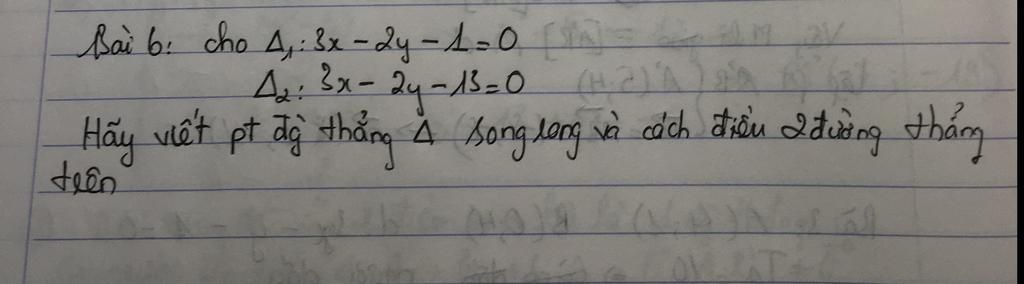 Bài 6: cho Δ₁: 3x - 2y - 1 = 0
Δ₂: 3x - 2y - 13 = 0
Hãy viết pt đg thẳng Δ song song và cách điều 2 đường thẳng
trên